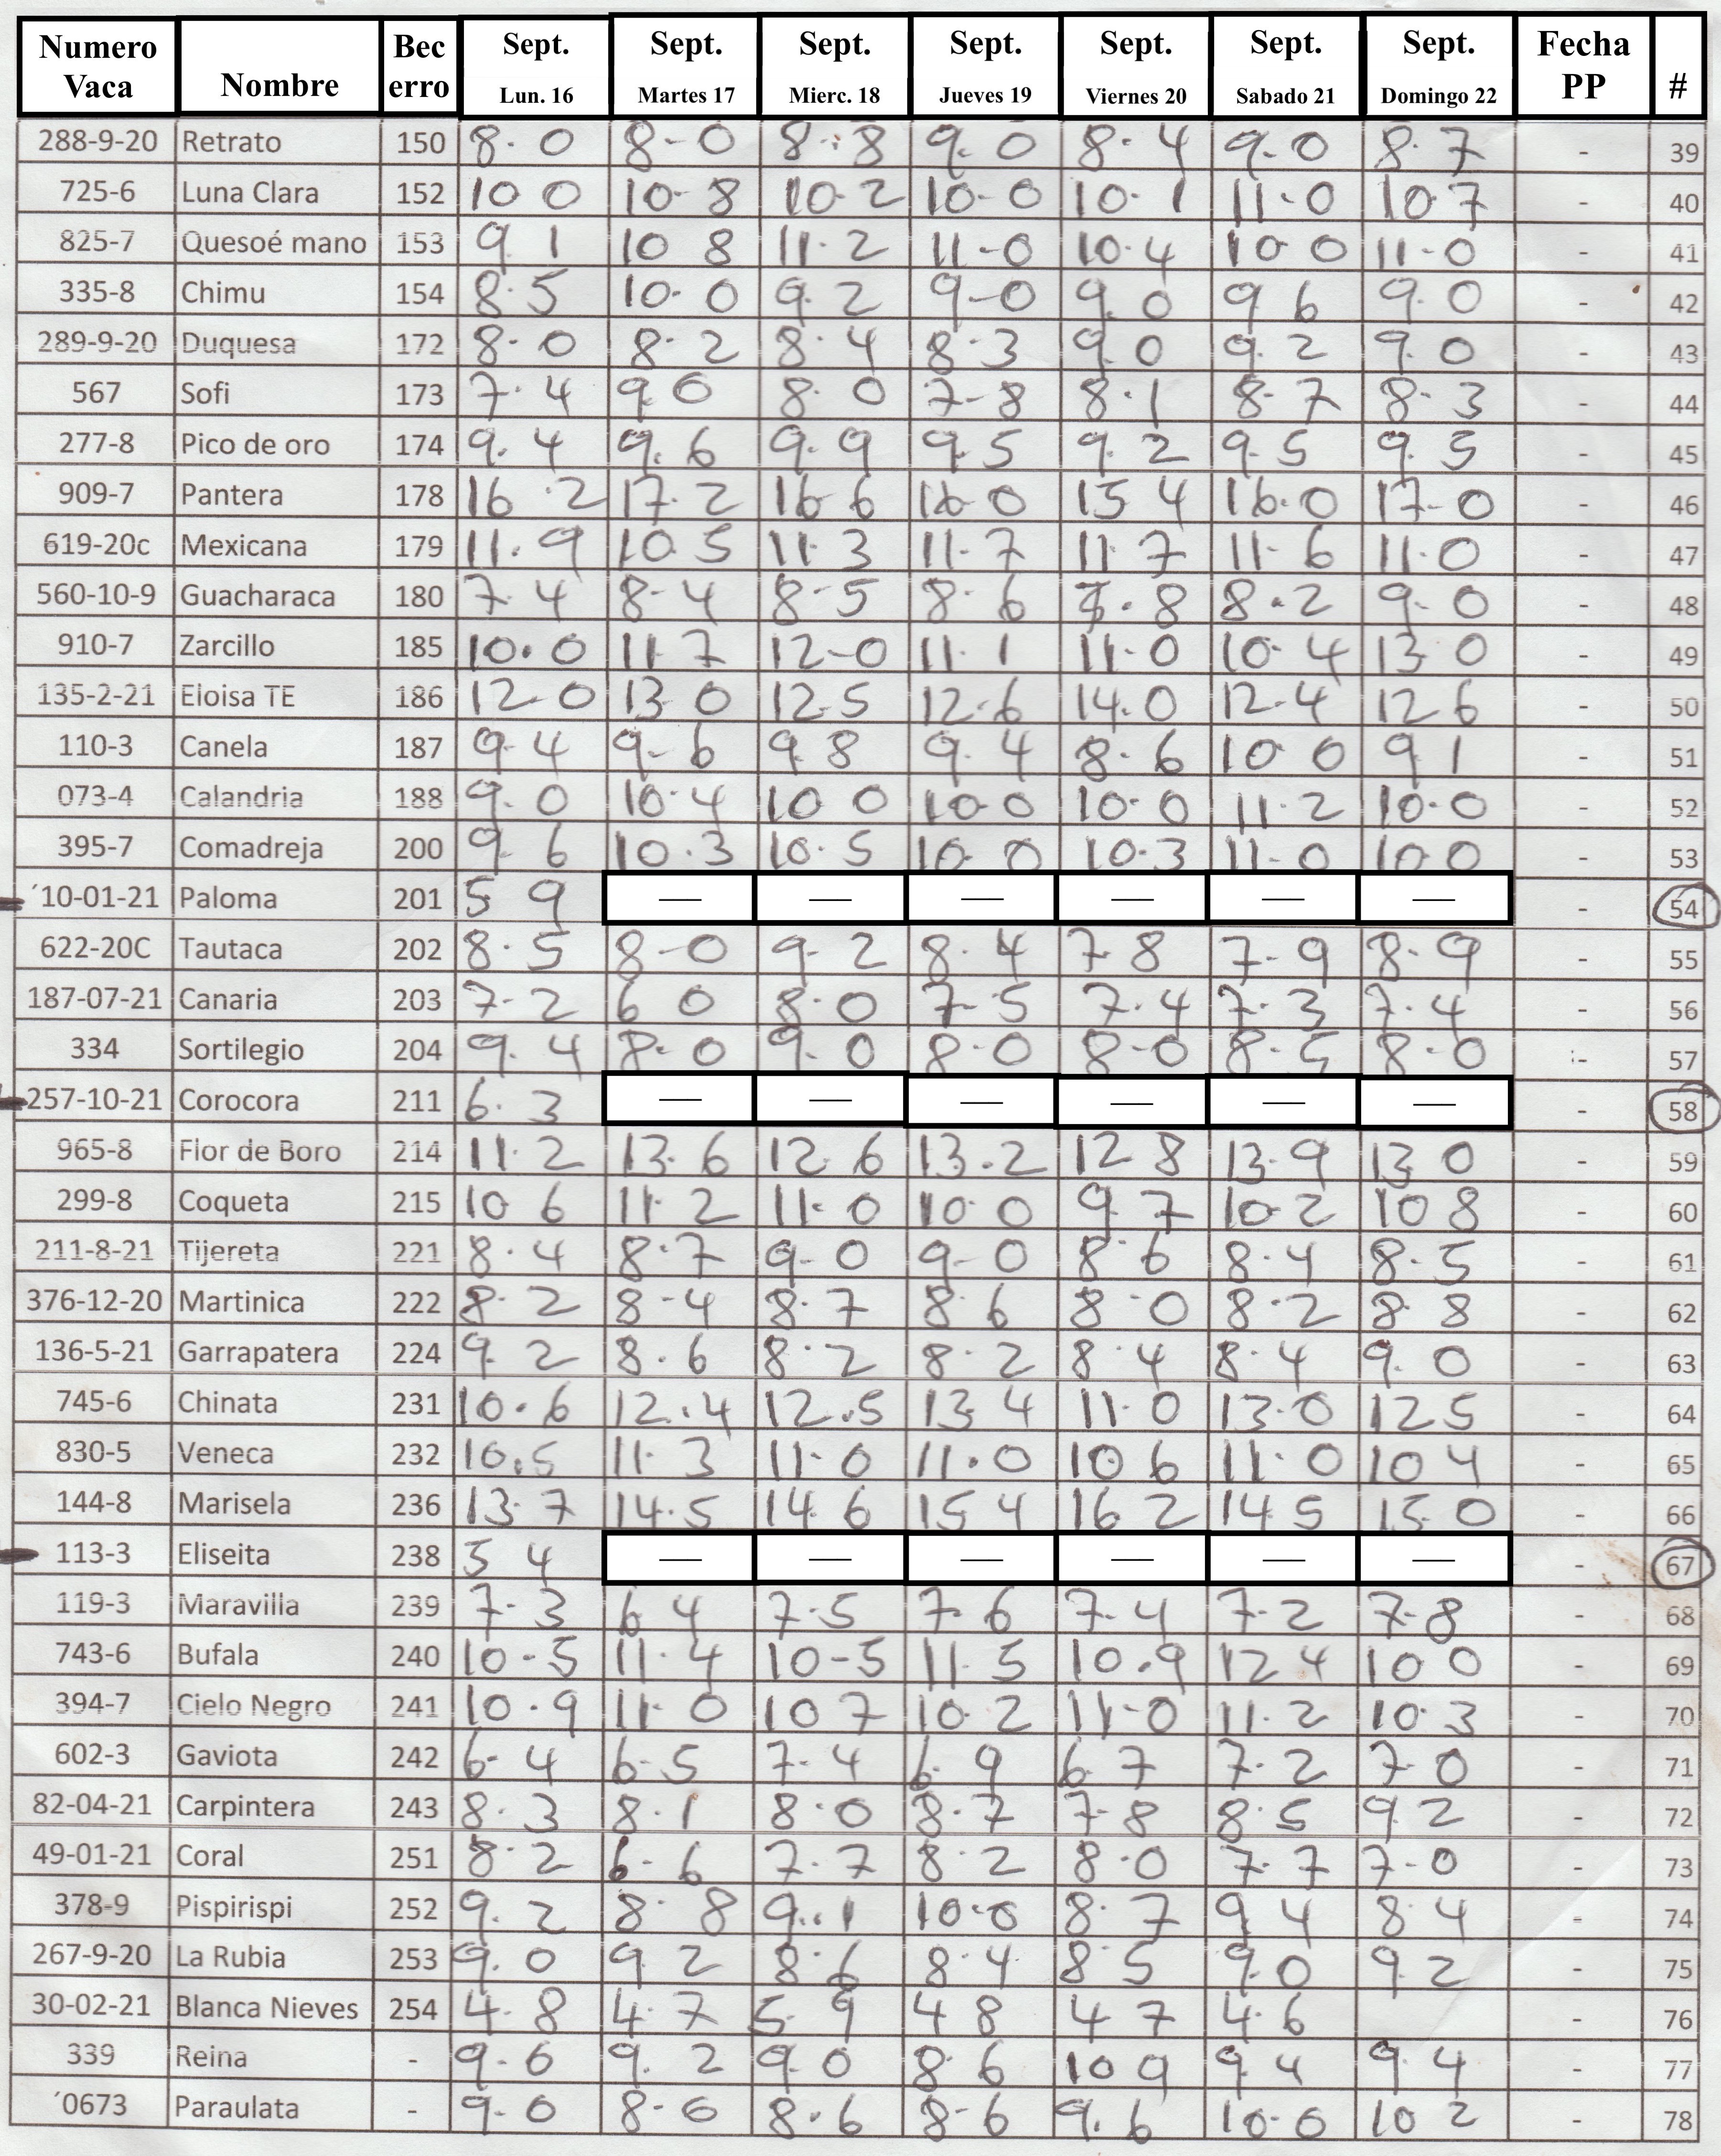 Numero Vaca Nombre Bec erro Sept. Lun. 16 Sept. Martes 17 Sept. Mierc. 18 Sept. Jueves 19 Sept. Viernes 20 Sept. Sabado 21 Sept. Domingo 22 Fecha PP #
288-9-20 Retrato 150 8.0 8-0 8.8 9.0 8.4 9.0 8.7 - 39
725-6 Luna Clara 152 10 0 10-8 10.2 10-0 10.1 11.0 10.7 - 40
825-7 Quesoé mano 153 9.1 10 8 11.2 11-0 10.4 10 0 11-0 - 41
335-8 Chimu 154 8.5 10.0 9.2 9-0 9.0 9 6 9.0 - 42
289-9-20 Duquesa 172 8.0 8.2 8.4 8.3 9.0 9.2 9.0 - 43
567 Sofi 173 7.4 9.0 8.0 7-8 8.1 8-7 8.3 - 44
277-8 Pico de oro 174 9.4 9.6 9.9 9.5 9.2 9.5 9.5 - 45
909-7 Pantera 178 16.2 17.2 16 6 16 0 15 4 16.0 17-0 - 46
619-20c Mexicana 179 11.9 10.5 11.3 11.7 11.7 11-6 11.0 - 47
560-10-9 Guacharaca 180 7.4 8-4 8-5 8.6 .8 8.2 9.0 - 48
910-7 Zarcillo 185 10.0 11 7 12-0 11.1 11-0 10-4 13 0 - 49
135-2-21 Eloisa TE 186 12.0 13 0 12.5 12.6 14.0 12.4 12 6 - 50
110-3 Canela 187 9.4 9-6 9.8 9.4 8.6 10 0 9 1 - 51
073-4 Calandria 188 9.0 10.4 10 0 10 0 10.0 11.2 10.0 - 52
395-7 Comadreja 200 9 6 10.3 10.5 10.0 10.3 11-0 10 0 - 53
´10-01-21 Paloma 201 5 9 — — — — — — - 54
622-20C Tautaca 202 8.5 8-0 9.2 8.4 7 8 7-9 8-9 - 55
187-07-21 Canaria 203 7-2 6 0 8.0 7-5 7.4 7.3 7.4 - 56
334 Sortilegio 204 9.4 8.0 9.0 8.0 8-0 8.5 8-0 - 57
257-10-21 Corocora 211 6.3 — — — — — — - 58
965-8 Flor de Boro 214 11.2 13.6 12.6 13.2 12 8 13.9 13 0 - 59
299-8 Coqueta 215 10 6 11.2 11.0 10.0 9.7 10-2 10 8 - 60
211-8-21 Tijereta 221 8.4 8.7 9-0 9-0 8.6 8.4 8.5 - 61
376-12-20 Martinica 222 8.2 8-4 8.7 8.6 8.0 8.2 8.8 - 62
136-5-21 Garrapatera 224 9.2 8.6 8.2 8.2 8.4 8.4 9.0 - 63
745-6 Chinata 231 10.6 12.4 12.5 13 4 11.0 13.0 12 5 - 64
830-5 Veneca 232 10.5 11.3 11.0 11.0 10 6 11.0 10 4 - 65
144-8 Marisela 236 13.7 14.5 14.6 15 4 16 2 14 5 15.0 - 66
113-3 Eliseita 238 5 4 — — — — — — - 67
119-3 Maravilla 239 7-3 6 4 7.5 7.6 7-4 7-2 7-8 - 68
743-6 Bufala 240 10-5 11.4 10-5 11.5 10.9 12 4 10 0 - 69
394-7 Cielo Negro 241 10.9 11.0 10 7 10.2 11-0 11.2 10.3 - 70
602-3 Gaviota 242 6-4 6-5 7-4 6.9 6.7 7-2 7-0 - 71
82-04-21 Carpintera 243 8.3 8.1 8.0 8.7 7-8 8.5 9 2 - 72
49-01-21 Coral 251 8.2 6-6 7-7 8.2 8.0 7-7 7-0 - 73
378-9 Pispirispi 252 9.2 8.8 9..1 10.0 8.7 9 4 8 4 - 74
267-9-20 La Rubia 253 9.0 9 2 8.6 8.4 8.5 9.0 9.2 - 75
30-02-21 Blanca Nieves 254 4.8 4.7 5.9 4 8 4 7 4.6 76
339 Reina - 9.0 9.2 9.0 8.6 10 0 9.4 9.4 - 77
´0673 Paraulata - 9.0 8.0 8.6 8-6 9.6 10.0 10 2 - 78